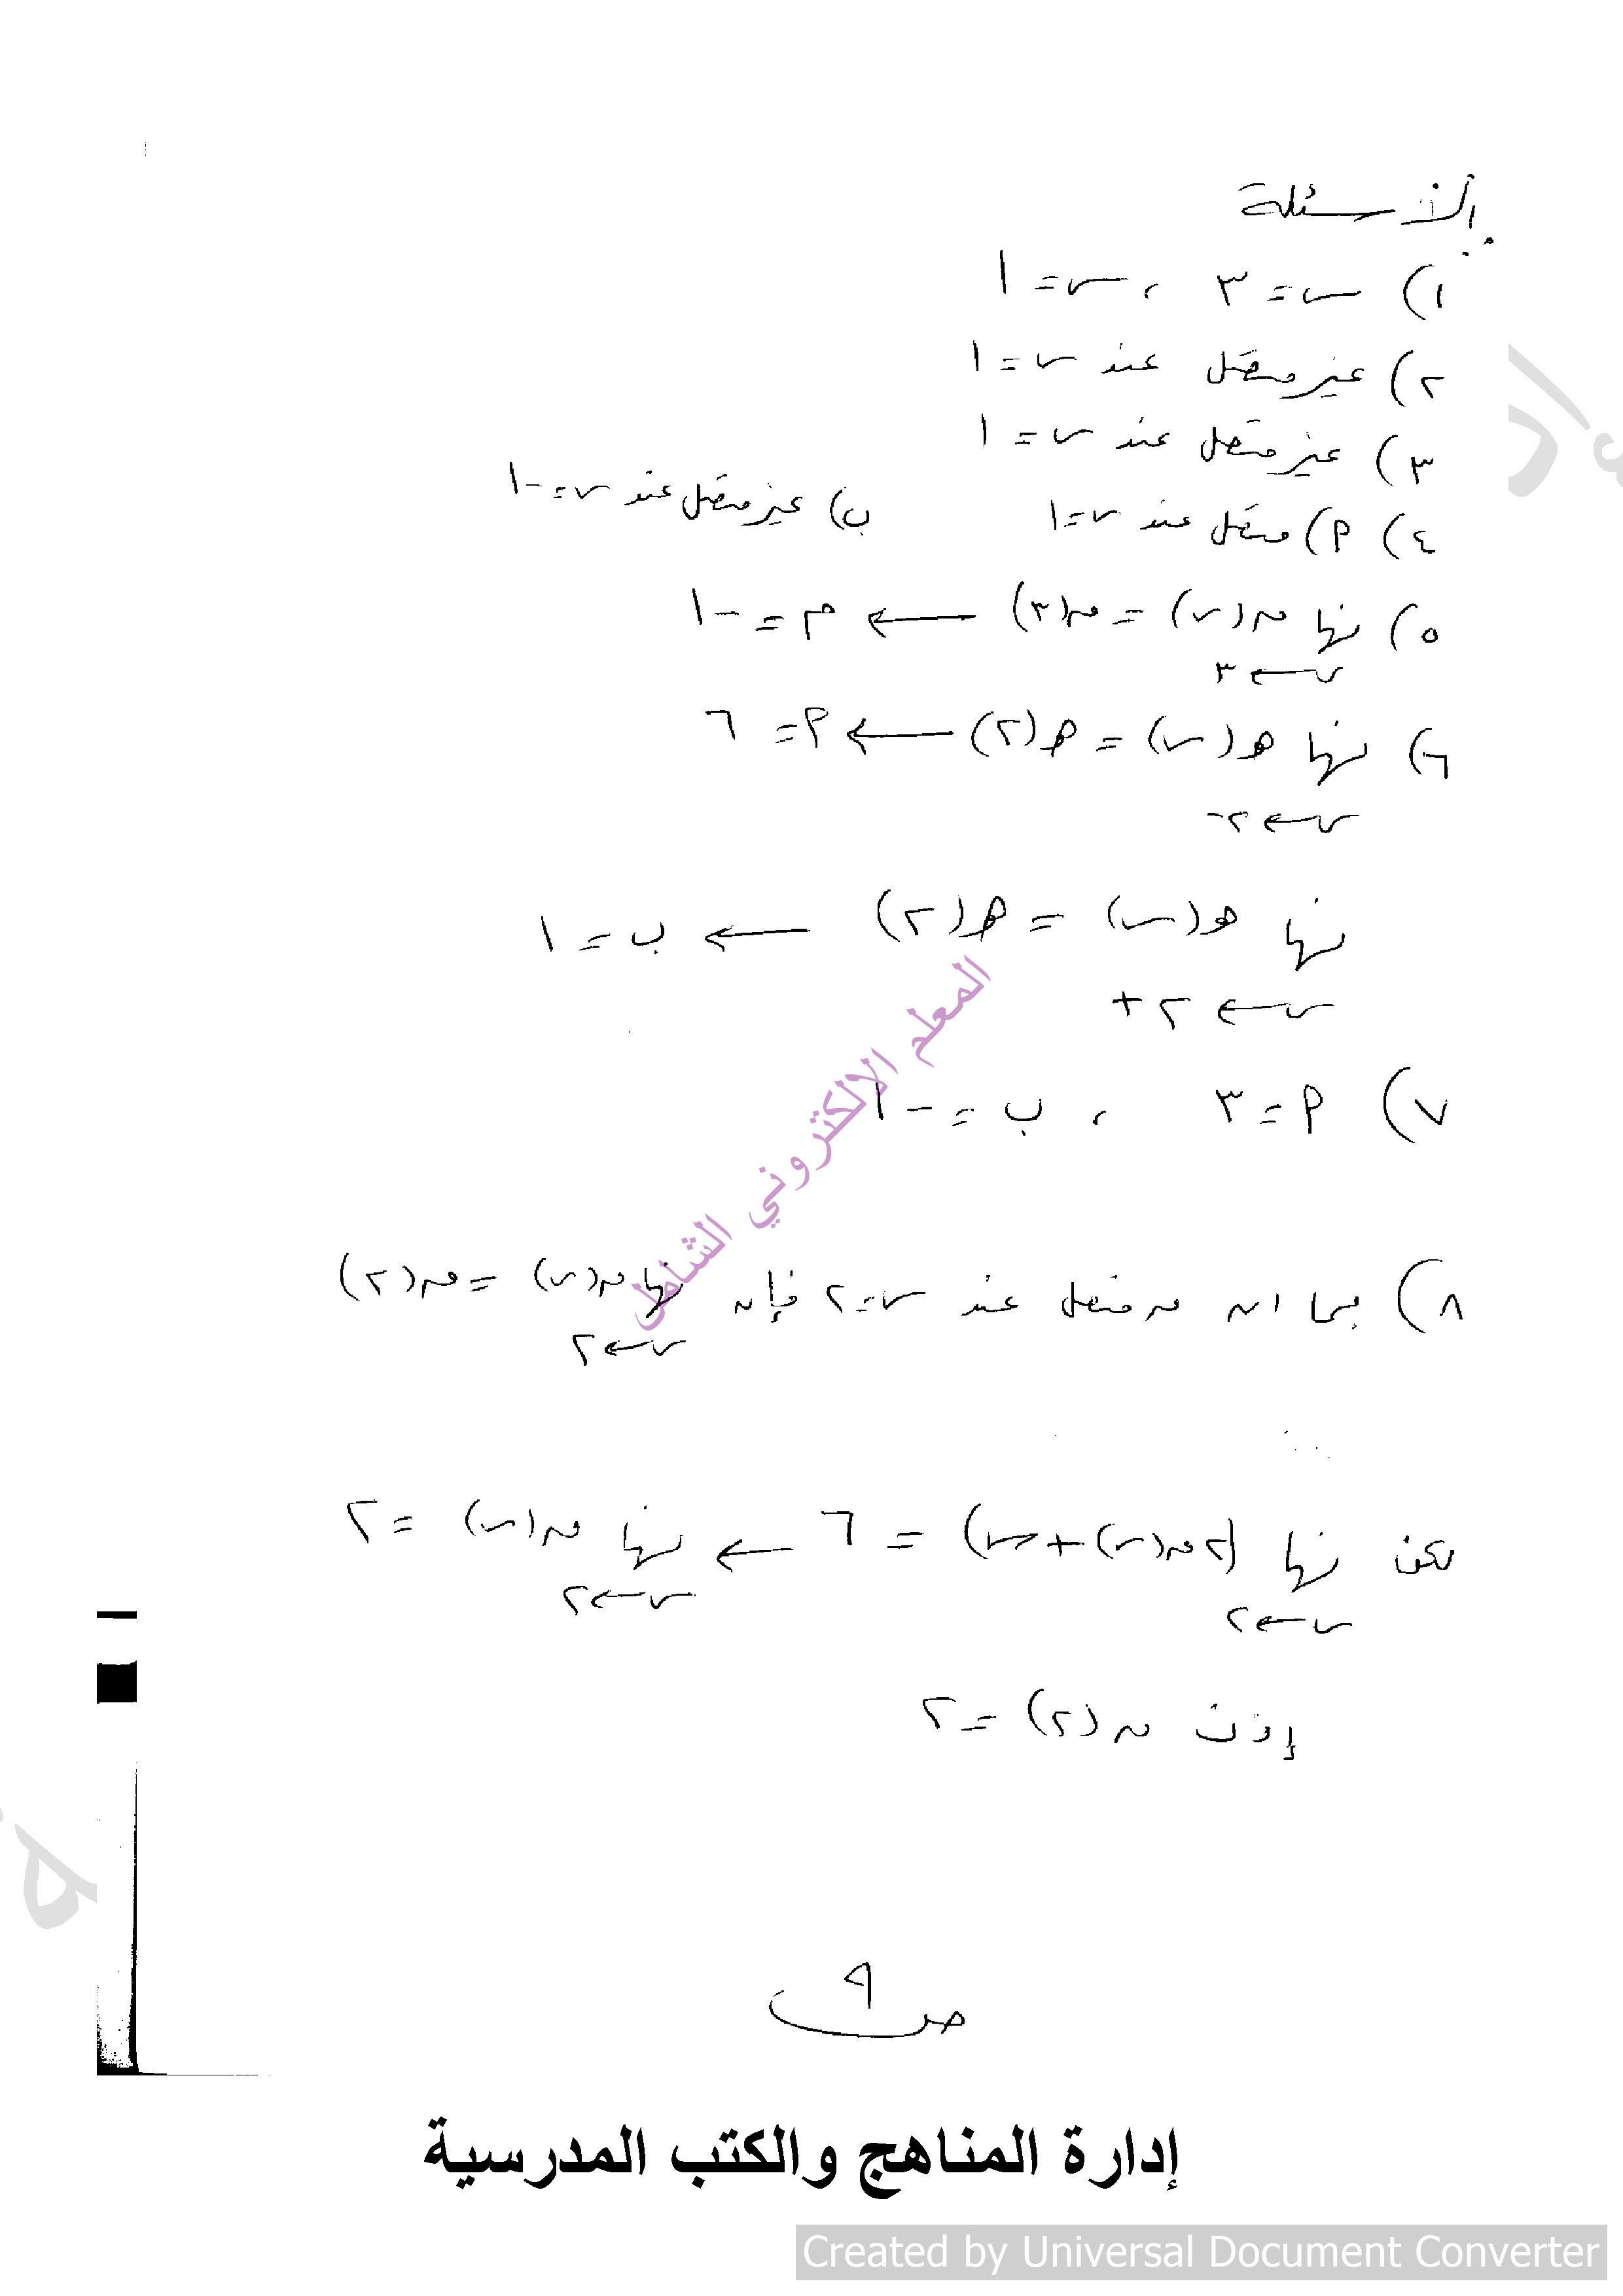 الأسئلة
١) س = ٣ ، س = ١
٢) غير متصل عند س = ١
٣) غير متصل عند س = ١
٤) أ) متصل عند س = ١ ب) غير متصل عند س = -١
٥) نها ق(س) = ق(٣) ← م = -١
س ← ٣
٦) نها هـ(س) = هـ(٢) ← أ = ٦
س ← ٢-
نها هـ(س) = هـ(٢) ← ب = ١
س ← ٢+
٧) أ = ٣ ، ب = -١
٨) بما ان ق متصل عند س = ٢ فإن نها ق(س) = ق(٢)
س ← ٢
لكن نها (٢ق(س) + س) = ٦ ← نها ق(س) = ٢
س ← ٢ س ← ٢
إذن ق(٢) = ٢
المعلم الالكتروني الشامل
ص ٩
إدارة المناهج والكتب المدرسية
Created by Universal Document Converter